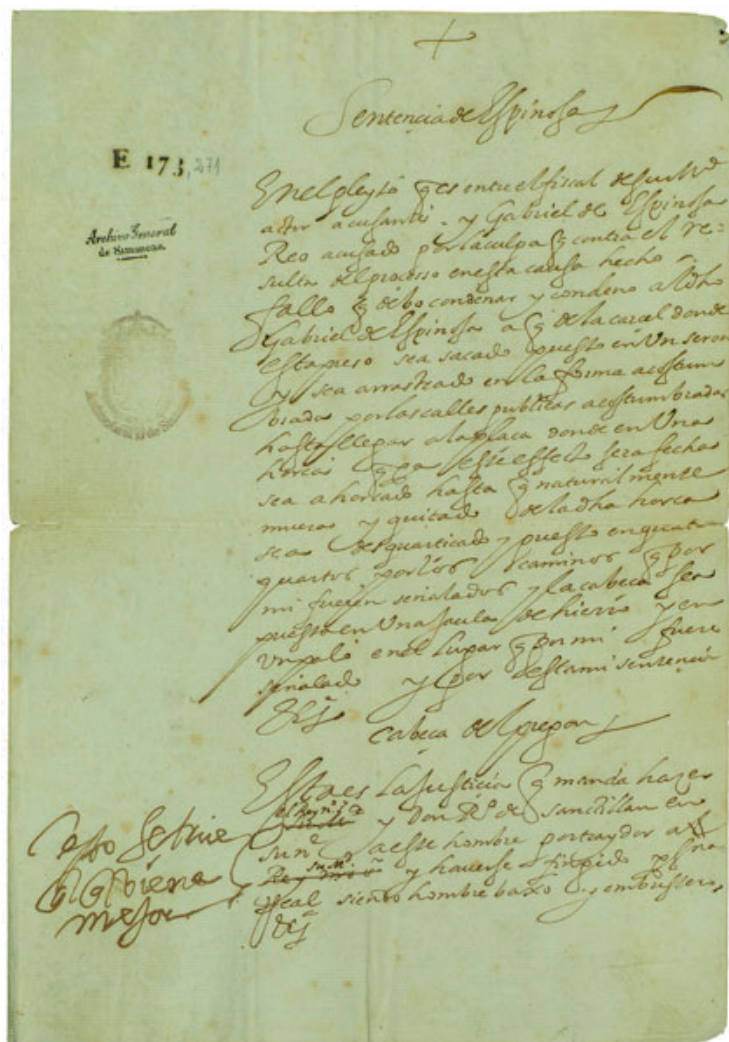 Sentencia de Espinosa
E 173, 271
Archivo General
de Simancas
En el pleyto q es entre el fiscal de su Md
actor acusante y Gabriel de Espinosa
Reo acusado por la culpa q contra el re=
sulta del processo en esta causa hecho
fallo q debo condenar y condeno al dho
Gabriel de Espinosa a q de la carcel donde
esta preso sea sacado puesto en Un seron
y sea arrastrado en la forma acostum
brada por las calles publicas acostumbradas
hasta llegar a la plaça donde en Una
horca q pa este effecto sera fecha
sea ahorcado hasta q naturalmente
muera y quitado de la dha horca
sea desquartiçado y puesto en quatro
quartos por los caminos q por
mi fueren señalados y la cabeça sea
puesta en Una jaula de hierro y en
Un palo en el Lugar q por mi fuere
señalado y por esta mi sentencia
&c
cabeça del pregon
Esta es La Justicia q manda hazer
el Rey nro
y don Ro de Santillan en
su ne a este hombre por traydor al
su Md
Rey y haverse fingido
Real siendo hombre baxo y embustero,
&c
mejor